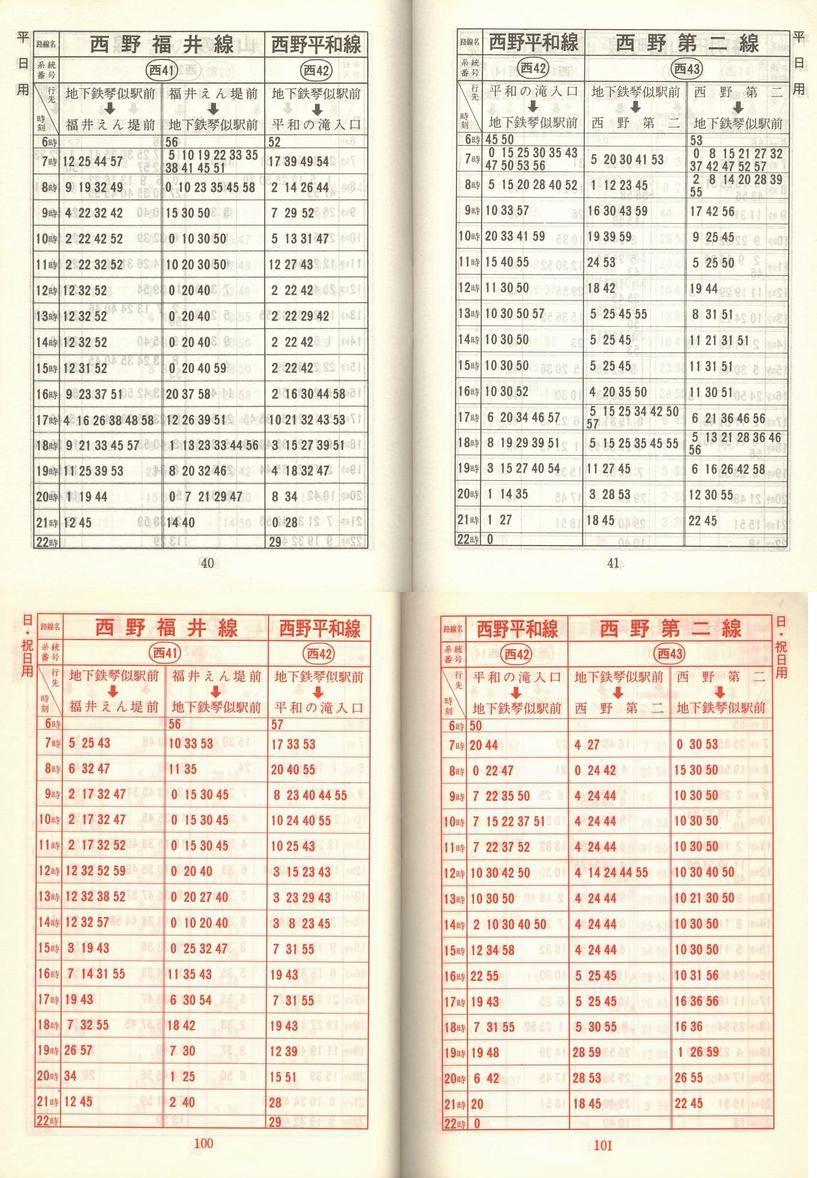 平日用
路線名 西野福井線 西野平和線
系統番号 西41 西42
行先 時刻 地下鉄琴似駅前 福井えん堤前 地下鉄琴似駅前
福井えん堤前 地下鉄琴似駅前 平和の滝入口
6時 56 52
7時 12 25 44 57 5 10 19 22 33 35 17 39 49 54
38 41 45 51
8時 9 19 32 49 0 10 23 35 45 58 2 14 26 44
9時 4 22 32 42 15 30 50 7 29 52
10時 2 22 42 52 0 10 30 50 5 13 31 47
11時 2 22 32 52 10 20 30 50 12 27 43
12時 12 32 52 0 20 40 2 22 42
13時 12 32 52 0 20 40 2 22 29 42
14時 12 32 52 0 20 40 2 22 42
15時 12 31 52 0 20 40 59 2 22 42
16時 9 23 37 51 20 37 58 2 16 30 44 58
17時 4 16 26 38 48 58 12 26 39 51 10 21 32 43 53
18時 9 21 33 45 57 1 13 23 33 44 56 3 15 27 39 51
19時 11 25 39 53 8 20 32 46 4 18 32 47
20時 1 19 44 0 7 21 29 47 8 34
21時 12 45 14 40 0 28
22時 29
40
平日用
路線名 西野平和線 西野第二線
系統番号 西42 西43
行先 時刻 平和の滝入口 地下鉄琴似駅前 西野第二
地下鉄琴似駅前 西野第二 地下鉄琴似駅前
6時 45 50 53
7時 0 15 25 30 35 43 5 20 30 41 53 0 8 15 21 27 32
47 50 53 56 37 42 47 52 57
8時 5 15 20 28 40 52 1 12 23 45 2 8 14 20 28 39
55
9時 10 33 57 16 30 43 59 17 42 56
10時 20 33 41 59 19 39 59 9 25 45
11時 15 40 55 24 53 5 25 50
12時 11 30 50 18 42 19 44
13時 10 30 50 57 5 25 45 55 8 31 51
14時 10 30 50 5 25 45 11 21 31 51
15時 10 30 50 5 25 45 11 31 51
16時 10 30 52 4 20 35 50 11 30 51
17時 6 20 34 46 57 5 15 25 34 42 50 6 21 36 46 56
57
18時 8 19 29 39 51 5 15 25 35 45 55 5 13 21 28 36 46
56
19時 3 15 27 40 54 11 27 45 6 16 26 42 58
20時 1 14 35 3 28 53 12 30 55
21時 1 27 18 45 22 45
22時 0
41
日・祝日用
路線名 西野福井線 西野平和線
系統番号 西41 西42
行先 時刻 地下鉄琴似駅前 福井えん堤前 地下鉄琴似駅前
福井えん堤前 地下鉄琴似駅前 平和の滝入口
6時 56 57
7時 5 25 43 10 33 53 17 33 53
8時 6 32 47 11 35 20 40 55
9時 2 17 32 47 0 15 30 45 8 23 40 44 55
10時 2 17 32 47 0 15 30 45 10 24 40 55
11時 2 17 32 52 0 15 30 45 10 25 43
12時 12 32 52 59 0 20 40 3 15 23 43
13時 12 32 38 52 0 20 27 40 3 23 29 43
14時 12 32 57 0 10 20 40 3 8 23 45
15時 3 19 43 0 25 32 47 7 31 55
16時 7 14 31 55 11 35 43 19 43
17時 19 43 6 30 54 7 31 55
18時 7 32 55 18 42 19 43
19時 26 57 7 30 12 39
20時 34 1 25 15 51
21時 12 45 2 40 28
22時 29
100
日・祝日用
路線名 西野平和線 西野第二線
系統番号 西42 西43
行先 時刻 平和の滝入口 地下鉄琴似駅前 西野第二
地下鉄琴似駅前 西野第二 地下鉄琴似駅前
6時 50
7時 20 44 4 27 0 30 53
8時 0 22 47 0 24 42 15 30 50
9時 7 22 35 50 4 24 44 10 30 50
10時 7 15 22 37 51 4 24 44 10 30 50
11時 7 22 37 52 4 24 44 10 30 50
12時 10 30 42 50 4 14 24 44 55 10 30 40 50
13時 10 30 50 4 24 44 10 21 30 50
14時 2 10 30 40 50 4 24 44 10 30 50
15時 12 34 58 4 24 44 10 30 50
16時 22 55 5 25 45 10 31 56
17時 19 43 5 25 45 16 36 56
18時 7 31 55 5 30 55 16 36
19時 19 48 28 59 1 26 59
20時 6 42 28 53 26 55
21時 20 18 45 22 45
22時 0
101